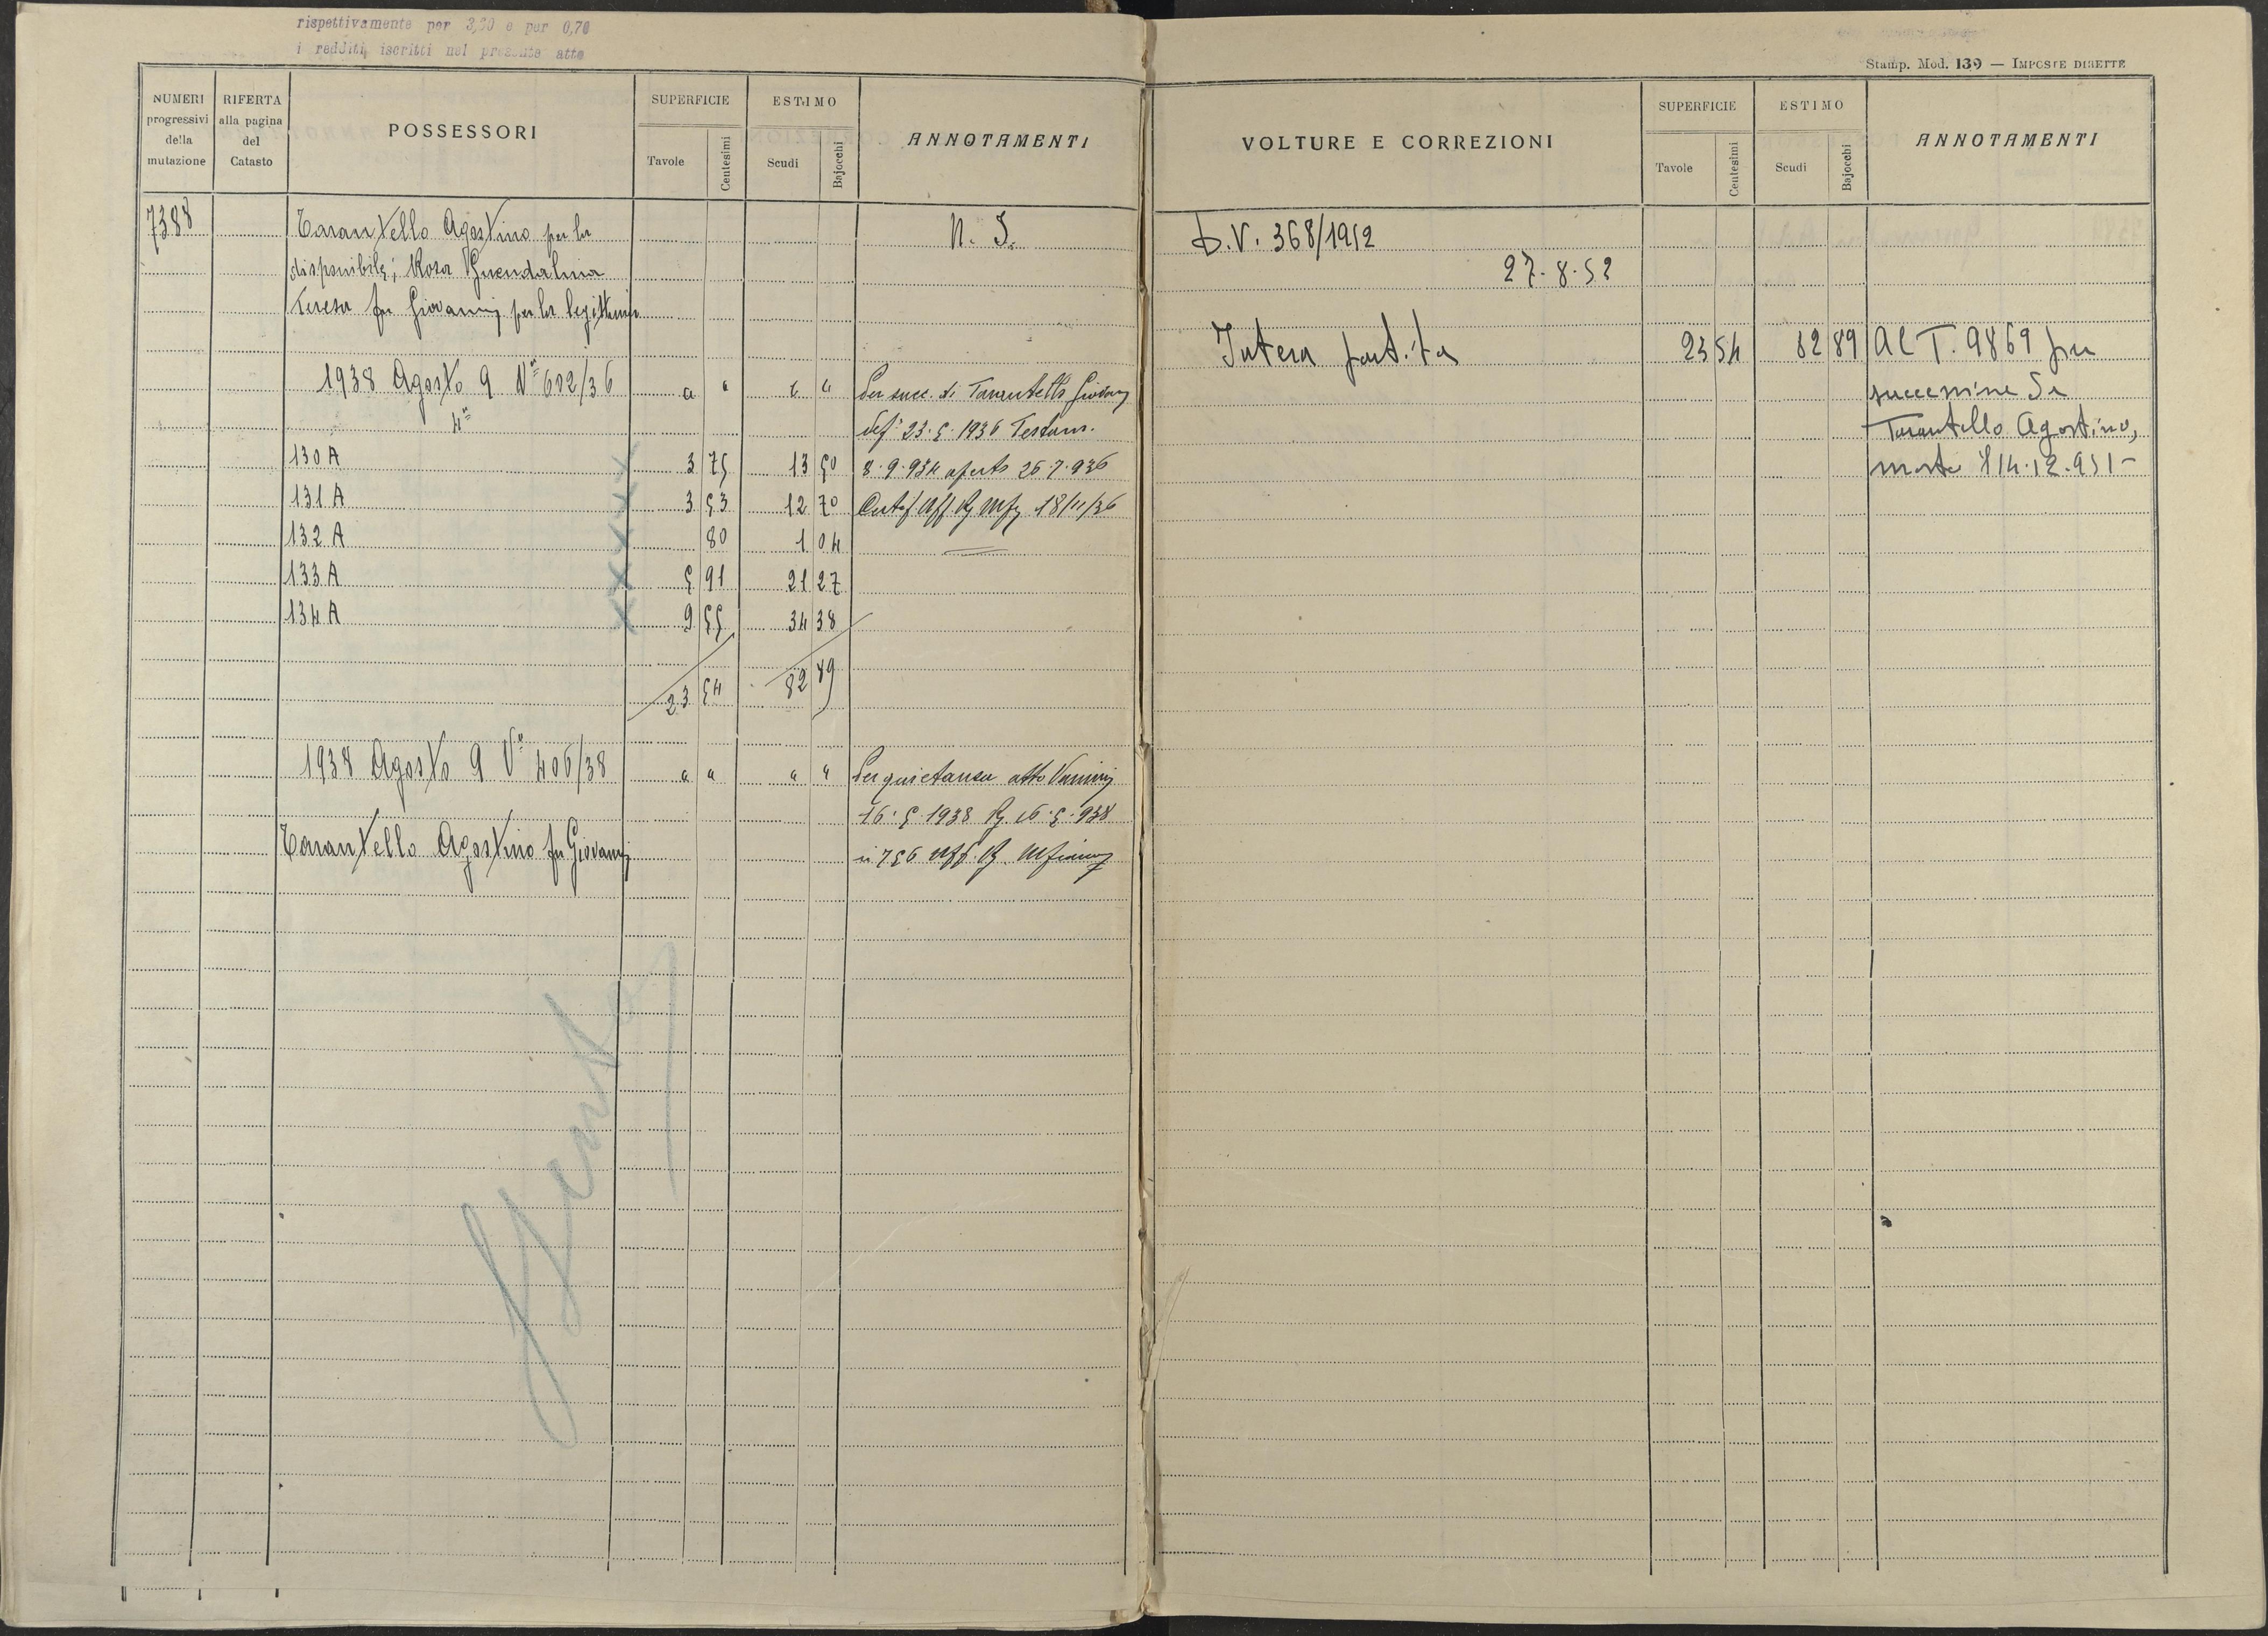 rispettivamente per 3,20 e per 0,70
i redditi iscritti nel presente atto
Stamp. Mod. 139 — IMPOSTE DIRETTE
NUMERI progressivi della mutazione
RIFERTA alla pagina del Catasto
POSSESSORI
SUPERFICIE
Tavole
Centesimi
ESTIMO
Scudi
Bajocchi
ANNOTAMENTI
VOLTURE E CORREZIONI
SUPERFICIE
Tavole
Centesimi
ESTIMO
Scudi
Bajocchi
ANNOTAMENTI
7388 Tarantello Agostino per la N. S.
disponibile; Rosa Guendalina
Teresa fu Giovanni per la legittima
1938 Agosto 9 N° 602/36 " " " " Per succ. di Tarantello Giovanni
4° 23.5.1936 Testam.
130 A 3 75 13 50 8.9.934 aperto 26.7.936
131 A 3 53 12 70 18/11/36
132 A 80 1 04
133 A 5 91 21 27
134 A 9 55 34 38
23 54 82 89
1938 Agosto 9 N° 406/38 " " " " Per quietanza atto Vannini
16.5.1938 Rg. 16.5.938
Tarantello Agostino fu Giovanni n 756 Uff. Rg.
Esento
D.V. 368/1952
27.8.52
Intera partita 23 54 82 89 Al T. 9869 per
successione di
Tarantello Agostino,
morto il 14.12.951-